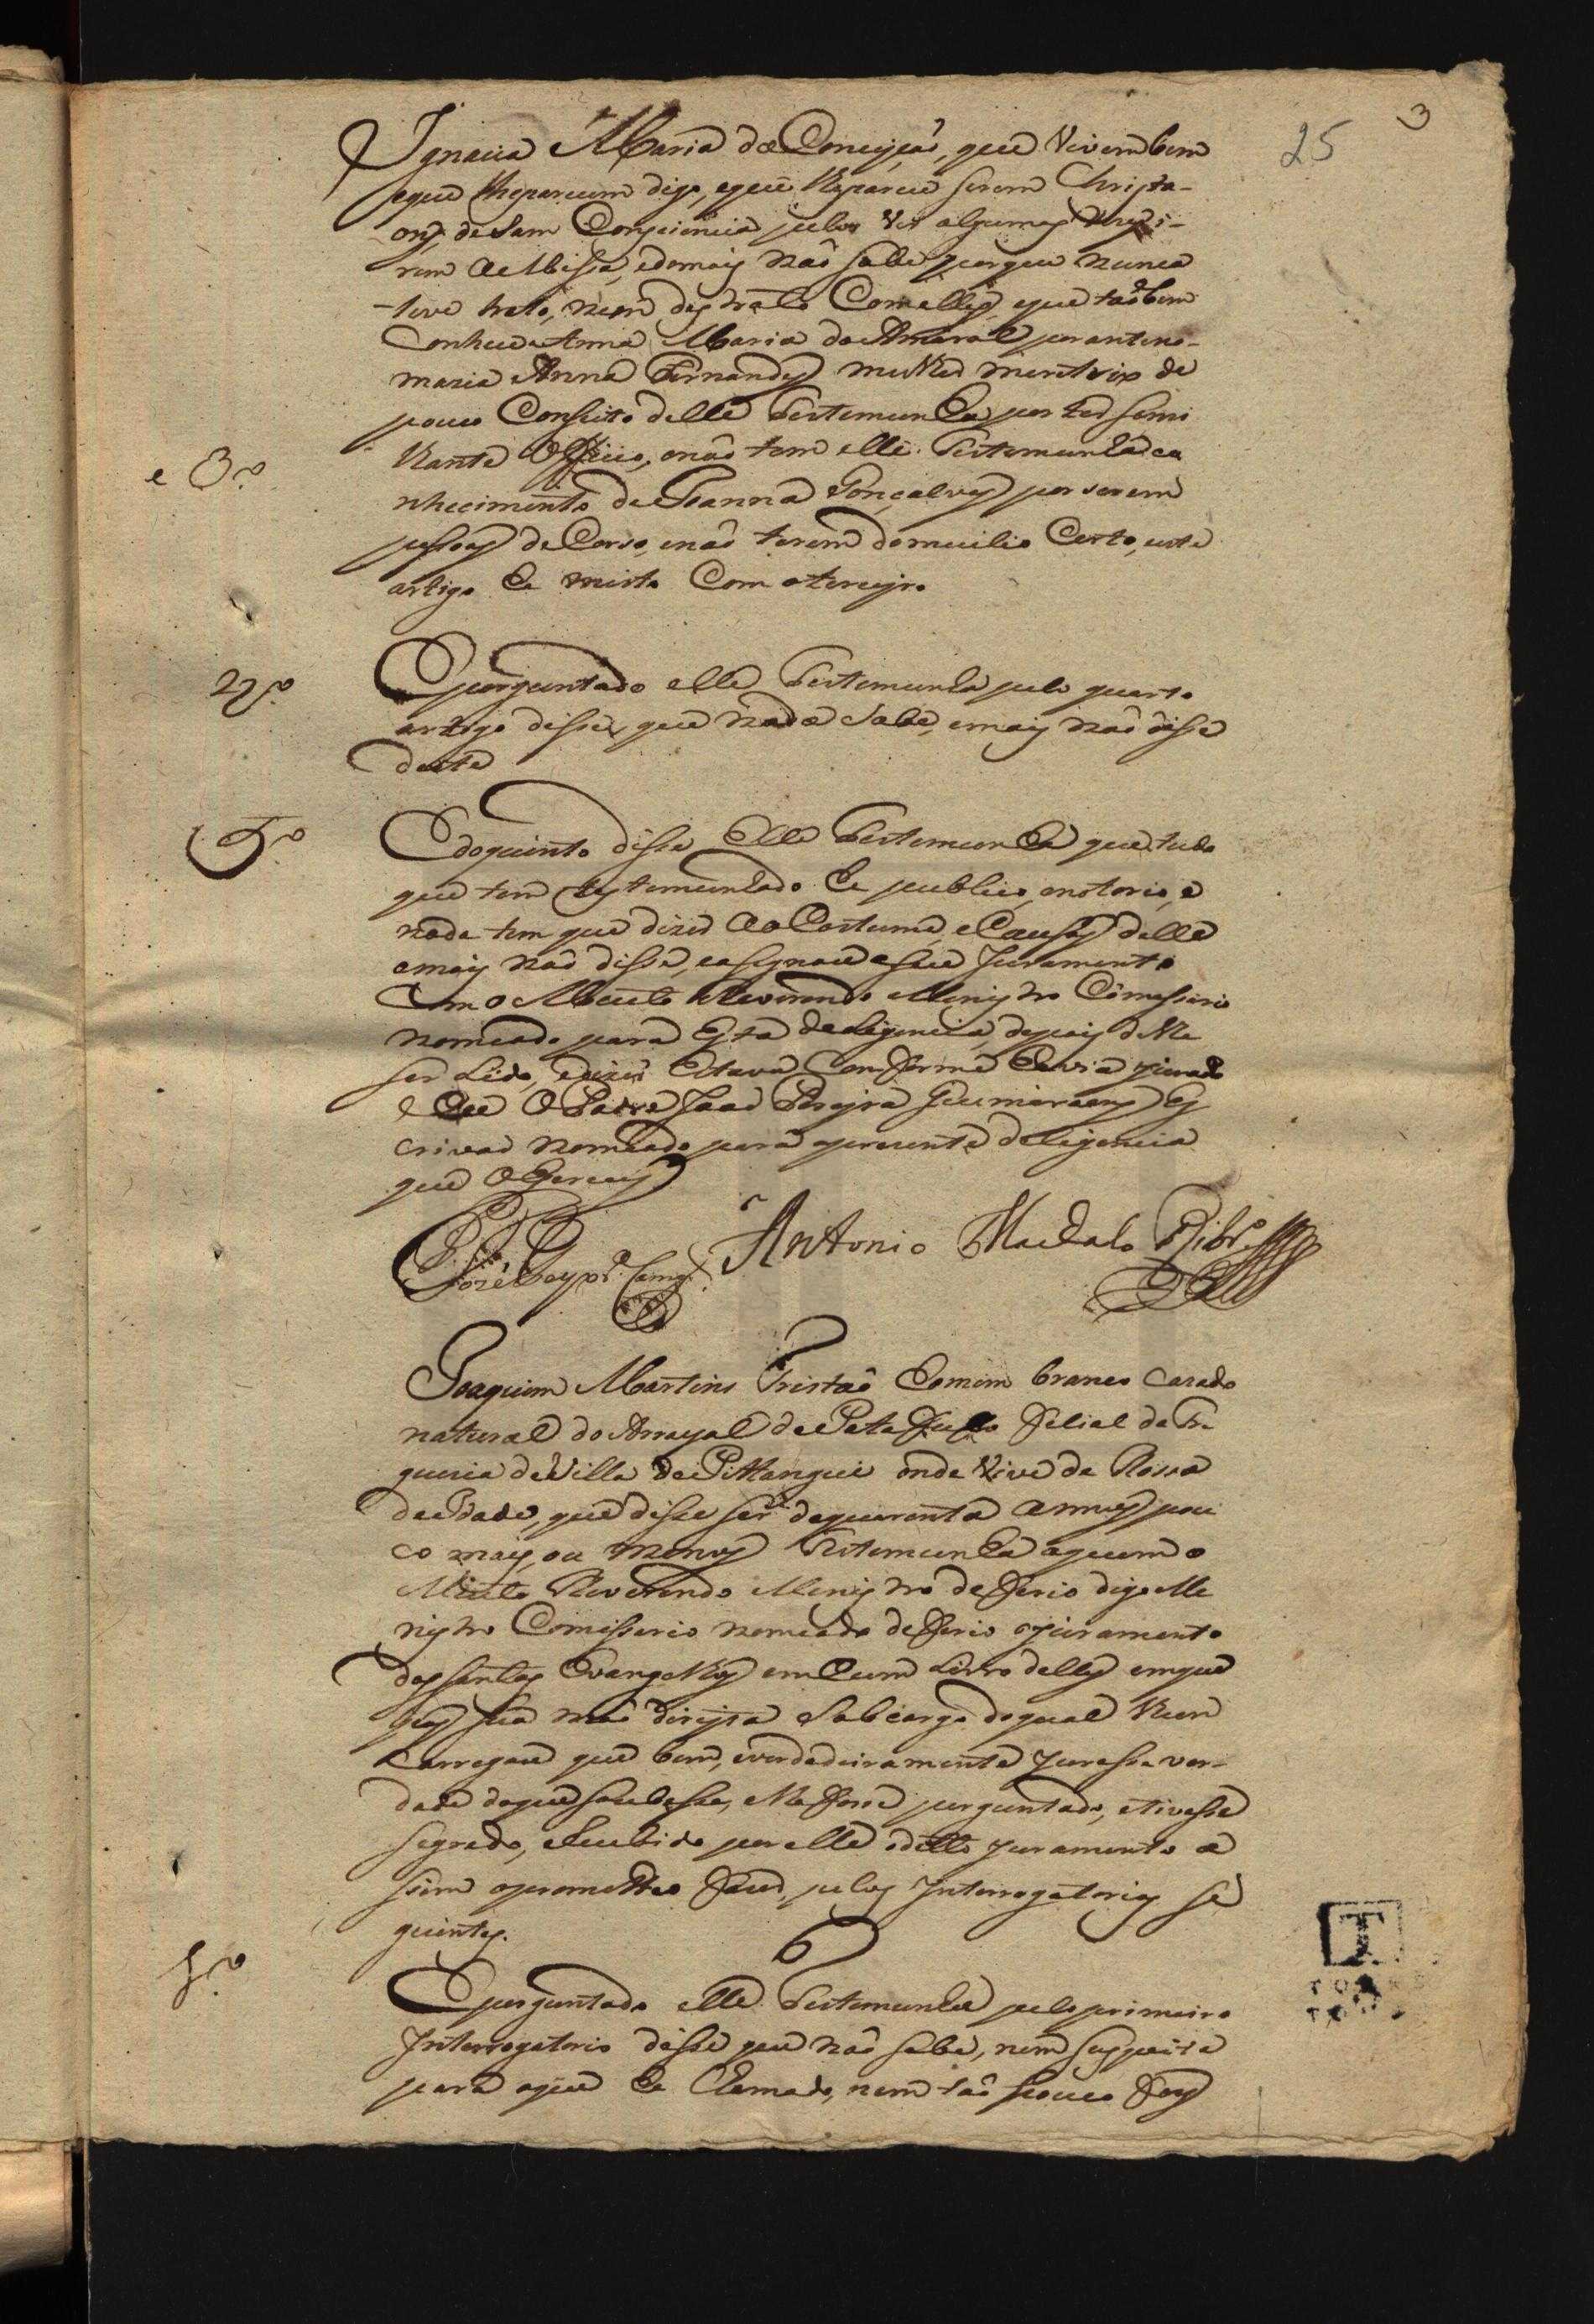 3
25
Ignacia Maria da Conceyçaõ, que vivem bem
eque lheparecem digo, eque lheparece serem Christa-
ons de sam Consciencia pelos ver algumas vezes i-
rem a Missa, edomais naõ sabe porque nunca
teve trato, nem destrato Comelles, eque taõbem
Conhece Anna Maria do Amaral por antono-
mazia Anna Fernandes mulher meretrix de
pouco Conseito delle Testemunha por ter seme
lhante Officio, enaõ tem elle Testemunha co
e 3.º
nhecimento de Joanna Gonçalves por serem
pessoas de Corso, enaõ terem domicilio Certo, este
artigo he misto Com oterceyro
4.º
E perguntado elle Testemunha pelo quarto
artigo disse, que nada sabe, emais naõ disse
deste
5.º
E do quinto disse elle Testemunha que tudo
que tem testemunhado he publico, enotorio, e
nada tem que dizer ao Costume, eCausas delle
emais naõ disse, easignou eseu Juramento
Com o Muito Reverendo Menistro Comessario
nomeado para esta deligencia, depois delhe
ser Lido, edizer estava Conforme havia jurado
e Eu O Padre Joaõ Pereyra Guimaraens Es
crivaõ nomeado para aprezente deligencia
que o Escrevy
José Gaspar Camg. Antonio Machado Ribr.º
Joaquim Martins Tristaõ homem branco cazado
natural do Arrayal do Patafufo Filial da Fre
guezia da Villa de Pitangui onde vive de Rossa
de Idade, que disse ser de quarenta annos pou
co mais, ou menos Testemunha aquem o
Muito Reverendo Menistro deferio digo Me
nistro Comissario nomeado deferio ojuramento
dos Santos Evangelhos em hum Livro delles emque
pos sua maõ direyta eSobcargo doqual lhen
carregou que bem, everdadeiramente jurasse ver-
dade doque soubesse, elhe fosse perguntado, etivesse
segredo, eRecebido por elle oditto juramento a
ssim oprometteo fazer, pelos Interrogatorios se
guintes.
1.º
E perguntado elle Testemunha pelo primeiro
Interrogatorio disse que naõ sabe, nem suspeita
para oque he Chamado, nem taõ pouco foy
T